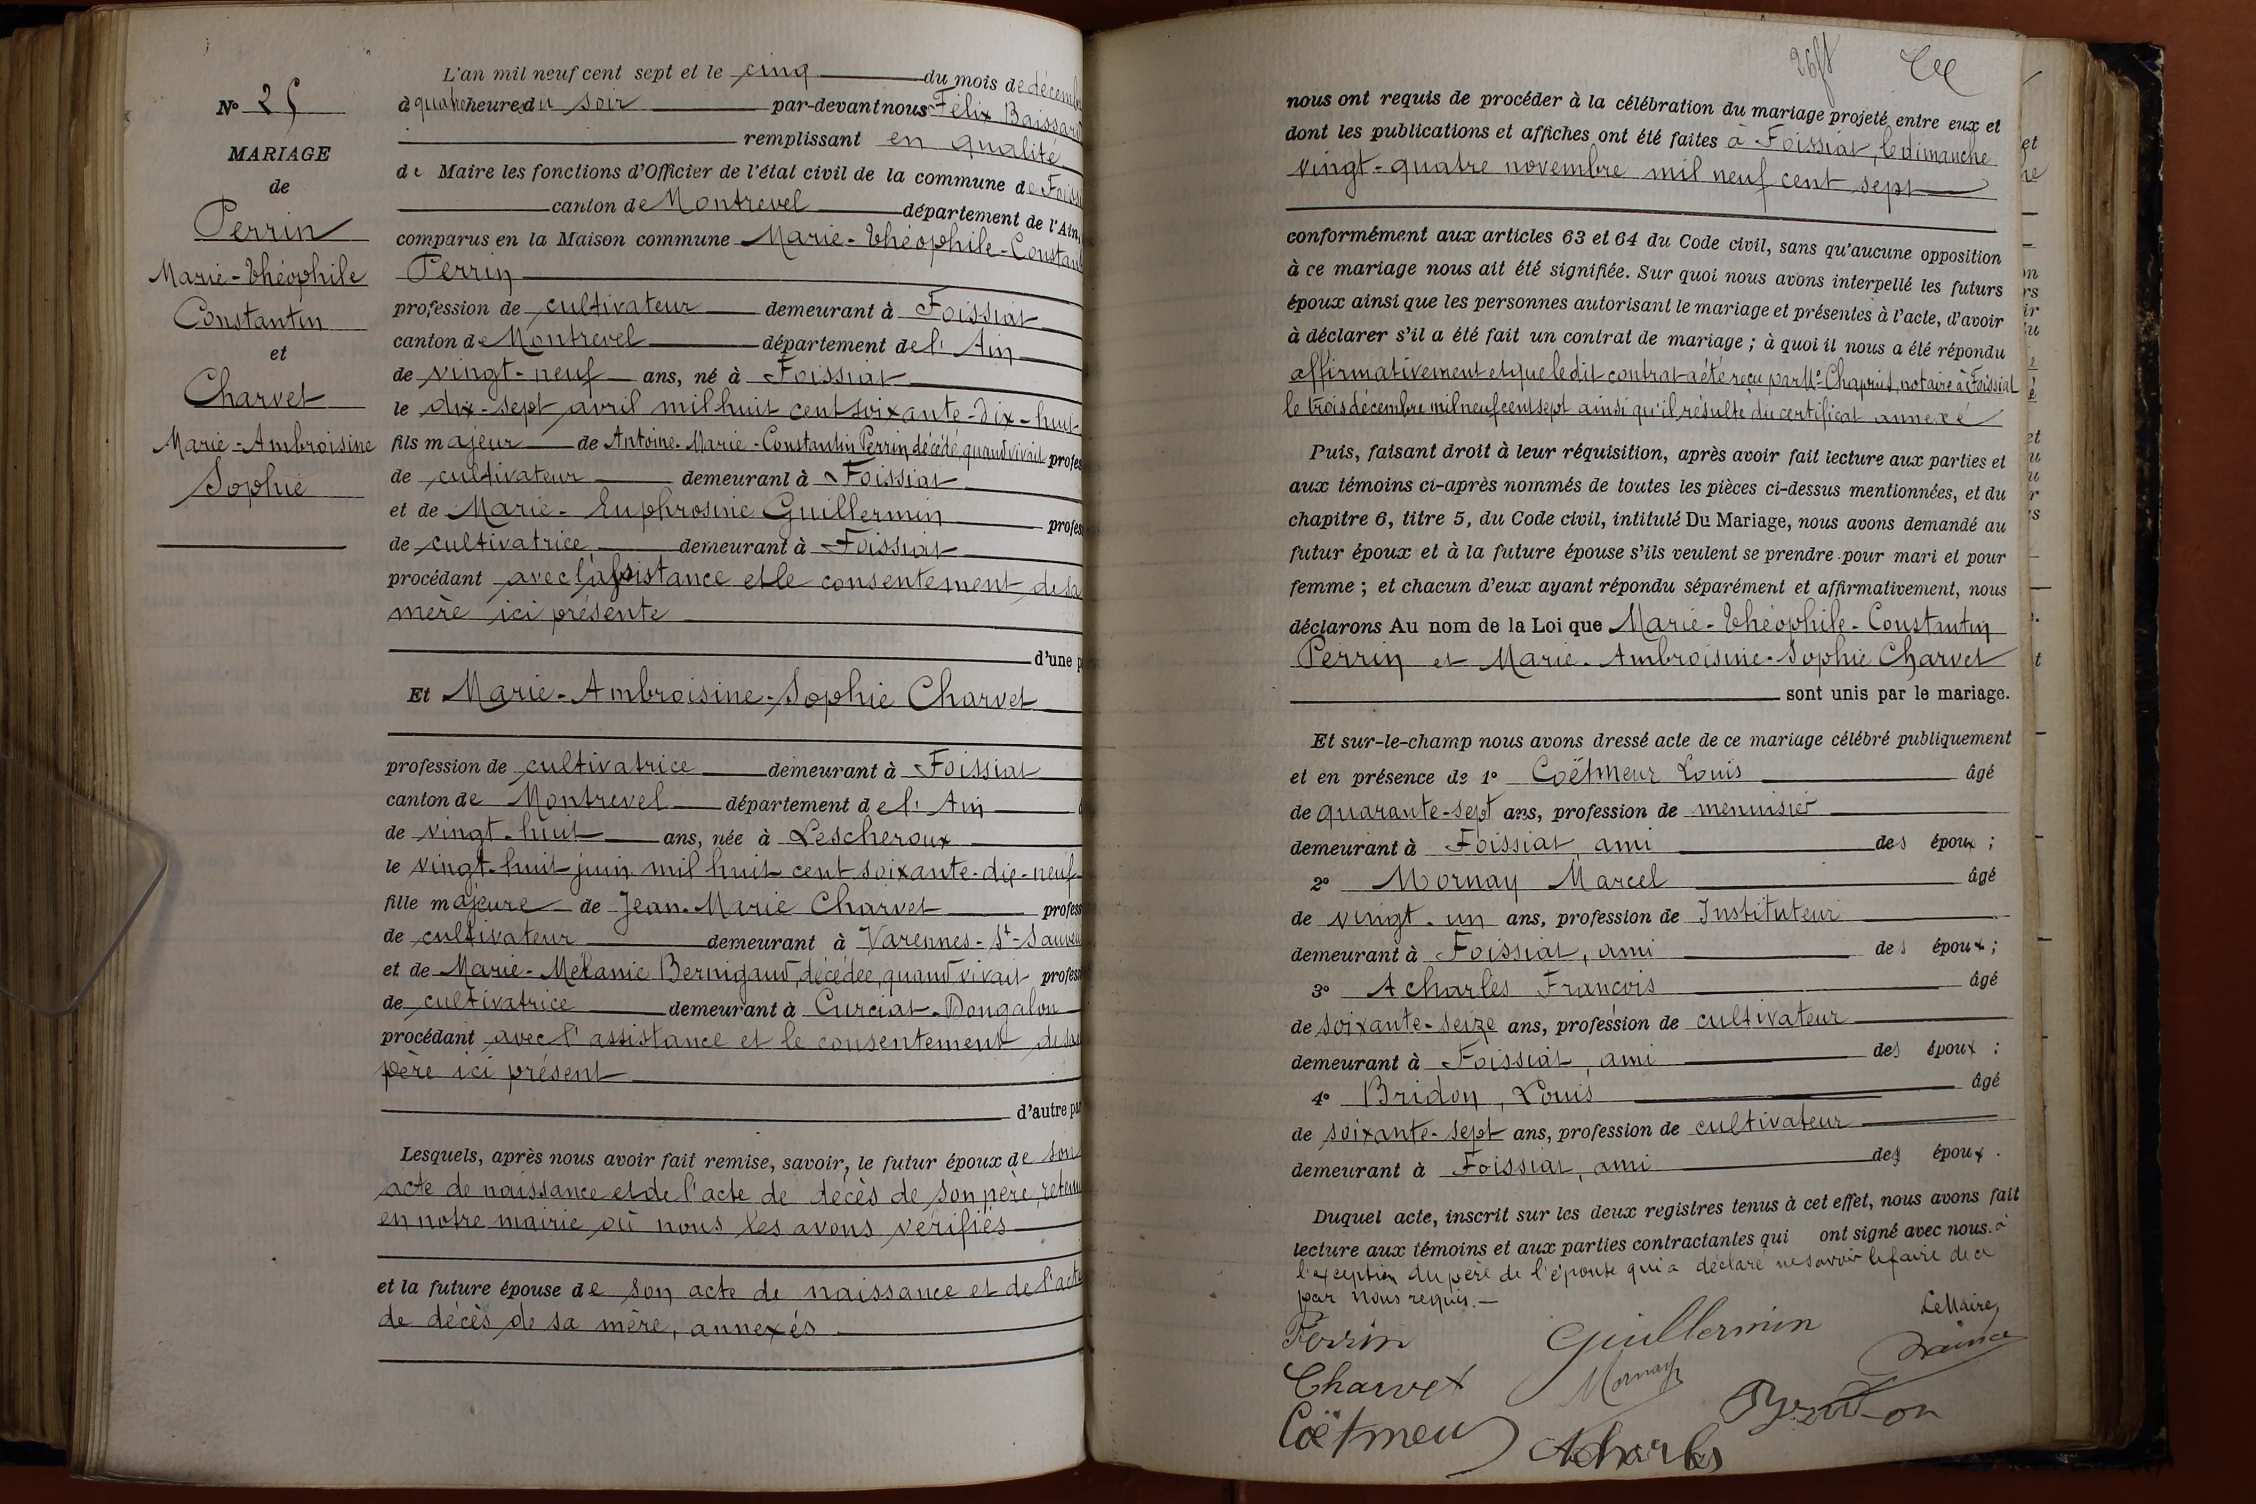 N° 25
MARIAGE
de
Perrin
Marie-Théophile
Constantin
et
Charvet
Marie-Ambroisine
Sophie
L'an mil neuf cent sept et le cinq du mois de décemb
à quatre heures du soir par-devant nous Félix Baissard
remplissant en qualité
de Maire les fonctions d'Officier de l'état civil de la commune de Foissi
canton de Montrevel département de l'Ain,
comparus en la Maison commune Marie-Théophile-Constan
Perrin
profession de cultivateur demeurant à Foissiat
canton de Montrevel département de l'Ain
de vingt-neuf ans, né à Foissiat
le dix-sept avril mil huit cent soixante-dix-huit
fils majeur de Antoine-Marie-Constantin Perrin décédé, quand vivait profes
de cultivateur demeurant à Foissiat
et de Marie-Euphrosine Guillermin profes
de cultivatrice demeurant à Foissiat
procédant avec l'assistance et le consentement de sa
mère ici présente
d'une p
Et Marie-Ambroisine-Sophie Charvet
profession de cultivatrice demeurant à Foissiat
canton de Montrevel département de l'Ain
de vingt-huit ans, née à Lescheroux
le vingt-huit juin mil huit cent soixante-dix-neuf
fille majeure de Jean-Marie Charvet profess
de cultivateur demeurant à Varennes-St-Sauveu
et de Marie-Mélanie Bernigaud, décédée, quand vivait profess
de cultivatrice demeurant à Curciat-Dongalon
procédant avec l'assistance et le consentement de son
père ici présent
d'autre par
Lesquels, après nous avoir fait remise, savoir, le futur époux de son
acte de naissance et de l'acte de décès de son père, retenu
en notre mairie où nous les avons vérifiés
et la future épouse de son acte de naissance et de l'acte
de décès de sa mère, annexés
nous ont requis de procéder à la célébration du mariage projeté entre eux et
dont les publications et affiches ont été faites à Foissiat, le dimanche
vingt-quatre novembre mil neuf cent sept
conformément aux articles 63 et 64 du Code civil, sans qu'aucune opposition
à ce mariage nous ait été signifiée. Sur quoi nous avons interpellé les futurs
époux ainsi que les personnes autorisant le mariage et présentes à l'acte, d'avoir
à déclarer s'il a été fait un contrat de mariage ; à quoi il nous a été répondu
affirmativement et que le dit contrat a été reçu par Me notaire à Foissiat
le trois décembre mil neuf cent sept ainsi qu'il résulte du certificat annexé
Puis, faisant droit à leur réquisition, après avoir fait lecture aux parties et
aux témoins ci-après nommés de toutes les pièces ci-dessus mentionnées, et du
chapitre 6, titre 5, du Code civil, intitulé Du Mariage, nous avons demandé au
futur époux et à la future épouse s'ils veulent se prendre pour mari et pour
femme ; et chacun d'eux ayant répondu séparément et affirmativement, nous
déclarons Au nom de la Loi que Marie-Théophile-Constantin
Perrin et Marie-Ambroisine-Sophie Charvet
sont unis par le mariage.
Et sur-le-champ nous avons dressé acte de ce mariage célébré publiquement
et en présence de 1° Coëtmeur Louis âgé
de quarante-sept ans, profession de menuisier
demeurant à Foissiat, ami des époux ;
2° Mornay Marcel âgé
de vingt-un ans, profession de Instituteur
demeurant à Foissiat, ami des époux ;
3° Acharles François âgé
de soixante-seize ans, profession de cultivateur
demeurant à Foissiat, ami des époux ;
4° Bridon, Louis âgé
de soixante-sept ans, profession de cultivateur
demeurant à Foissiat, ami des époux.
Duquel acte, inscrit sur les deux registres tenus à cet effet, nous avons fait
lecture aux témoins et aux parties contractantes qui ont signé avec nous à
l'exception du père de l'épouse qui a déclaré ne savoir le faire de ce
par nous requis.
Le Maire,
Perrin Guillermin
Charvet Mornay
Coëtmeur Acharles